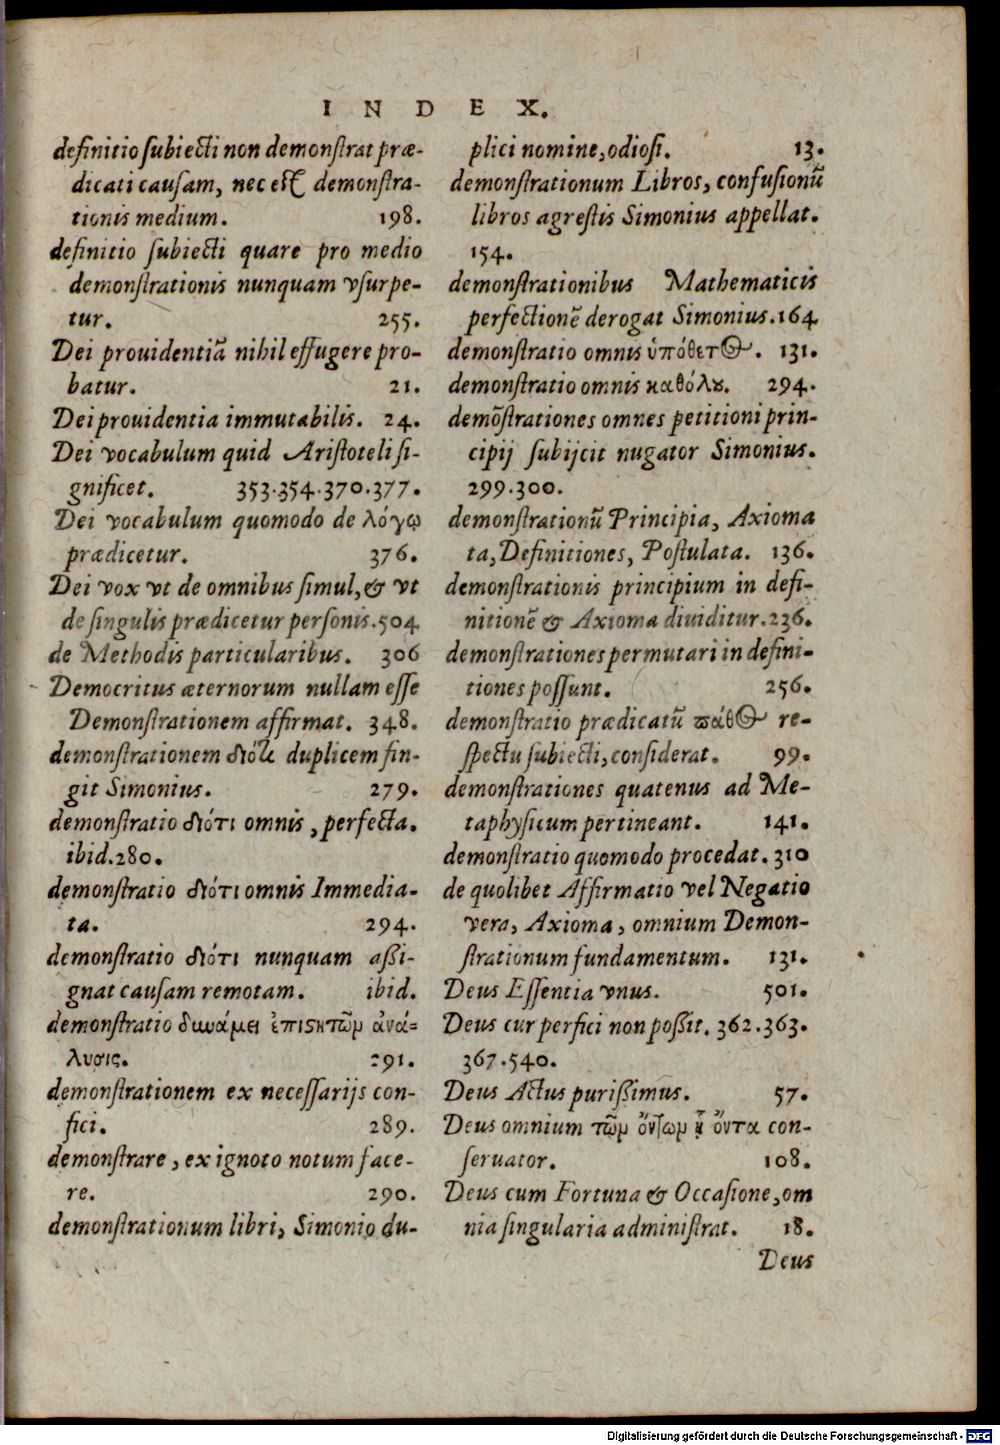 INDEX.
definitio ſubiecti non demonſtrat præ-
dicati cauſam, nec eſt demonſtra-
tionis medium. 198.
definitio ſubiecti quare pro medio
demonſtrationis nunquam vſurpe-
tur. 255.
Dei prouidentiã nihil effugere pro-
batur. 21.
Dei prouidentia immutabilis. 24.
Dei vocabulum quid Ariſtoteli ſi-
gnificet. 353.354.370.377.
Dei vocabulum quomodo de λόγῳ
prædicetur. 376.
Dei vox vt de omnibus ſimul, & vt
de ſingulis prædicetur perſonis. 504
de Methodis particularibus. 306
Democritus æternorum nullam eſſe
Demonſtrationem affirmat. 348.
demonſtrationem διότι duplicem fin-
git Simonius. 279.
demonſtratio διότι omnis, perfecta.
ibid. 280.
demonſtratio διότι omnis Immedia-
ta. 294.
demonſtratio διότι nunquam aßi-
gnat cauſam remotam. ibid.
demonſtratio δυνάμει ἐπιϛητῶν ἀνά-
λυσις. 291.
demonſtrationem ex neceſſarijs con-
fici. 289.
demonſtrare, ex ignoto notum face-
re. 290.
demonſtrationum libri, Simonio du-
plici nomine, odioſi. 13.
demonſtrationum Libros, confuſionũ
libros agreſtis Simonius appellat.
154.
demonſtrationibus Mathematicis
perfectionẽ derogat Simonius. 164
demonſtratio omnis ὑπόθετος. 131.
demonſtratio omnis καθόλȣ. 294.
demõſtrationes omnes petitioni prin-
cipij ſubijcit nugator Simonius.
299.300.
demonſtrationũ Principia, Axioma
ta, Definitiones, Poſtulata. 136.
demonſtrationis principium in defi-
nitionẽ & Axioma diuiditur. 236.
demonſtrationes permutari in defini-
tiones poſſunt. 256.
demonſtratio prædicatũ πάθος re-
ſpectu ſubiecti, conſiderat. 99.
demonſtrationes quatenus ad Me-
taphyſicum pertineant. 141.
demonſtratio quomodo procedat. 310
de quolibet Affirmatio vel Negatio
vera, Axioma, omnium Demon-
ſtrationum fundamentum. 131.
Deus Eſſentia vnus. 501.
Deus cur perfici non poßit. 362.363.
367.540.
Deus Actus purißimus. 57.
Deus omnium τῶν ὄντων ᾗ ὄντα con-
ſeruator. 108.
Deus cum Fortuna & Occaſione, om
nia ſingularia adminiſtrat. 18.
Deus
Digitalisierung gefördert durch die Deutsche Forschungsgemeinschaft - DFG